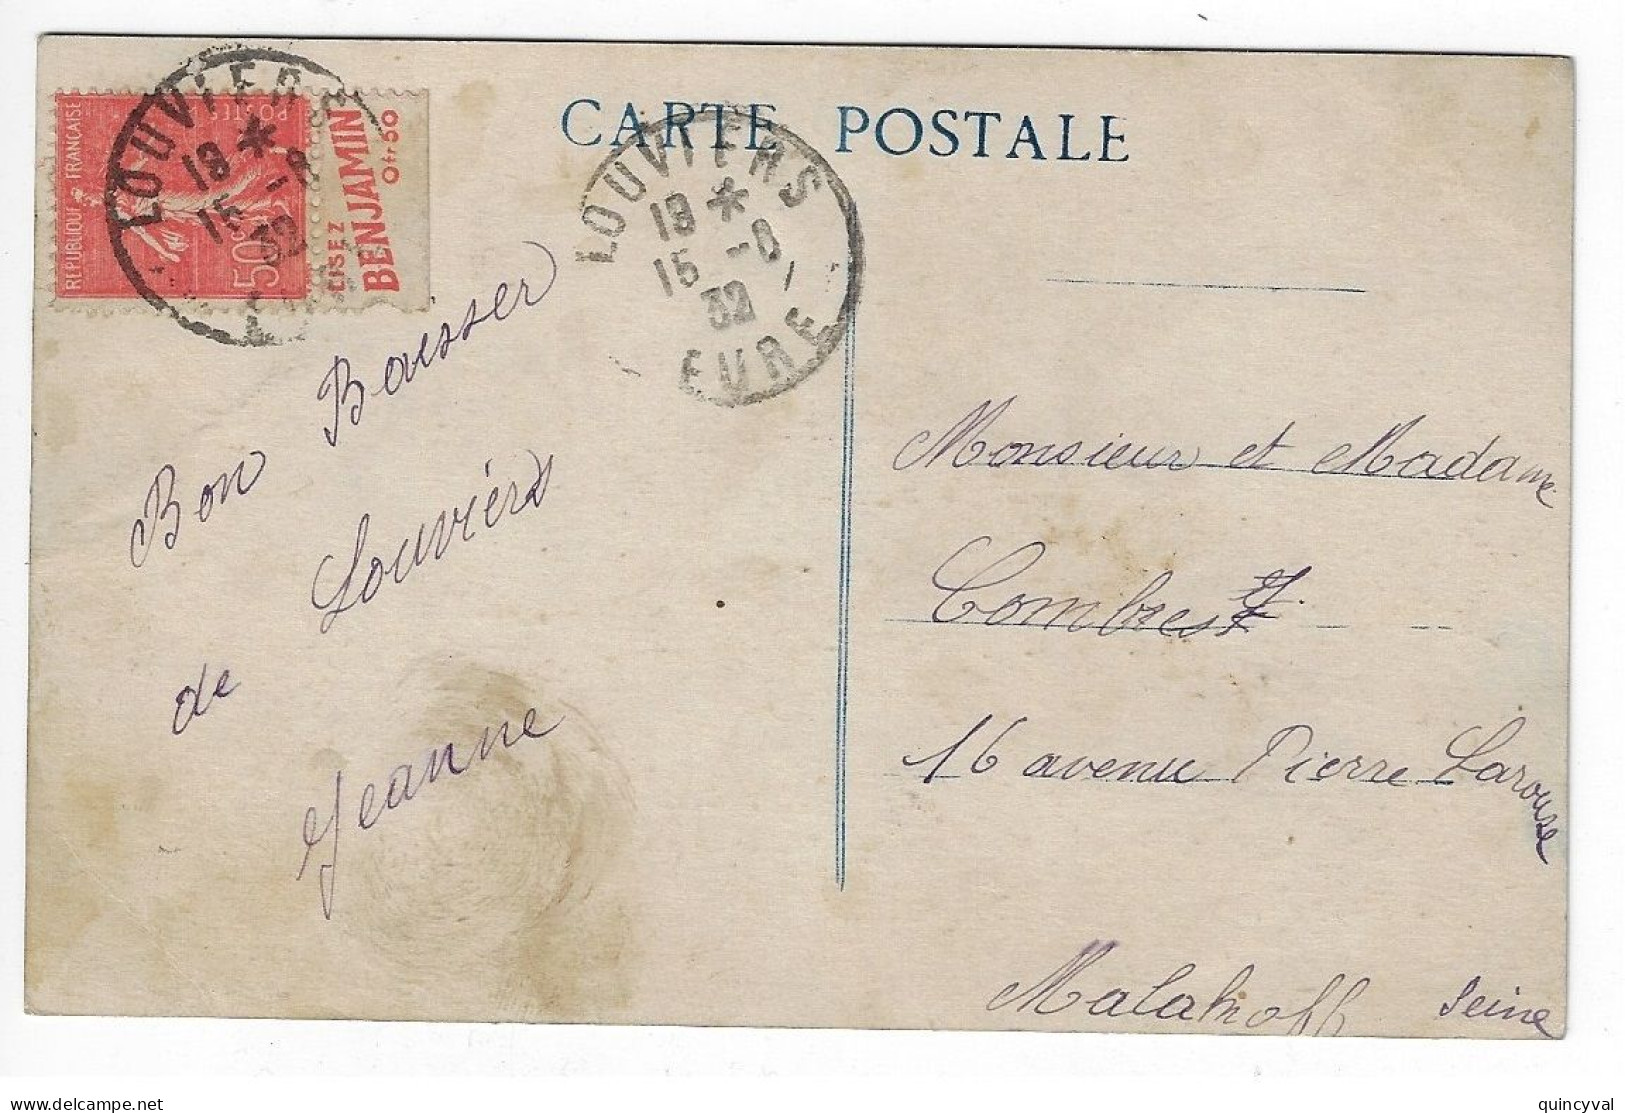 CARTE POSTALE
REPUBLIQUE FRANÇAISE
POSTES
50c
LISEZ
BENJAMIN
0fr50
LOUVIERS
18 *
15 -8
32
LOUVIERS
18 *
15 -8
32
EURE
Bon Baisser
de Louviers
Jeanne
Monsieur et Madame
Combres
16 avenue Pierre Larouse
Malakoff Seine
delcampe.net
quincyval